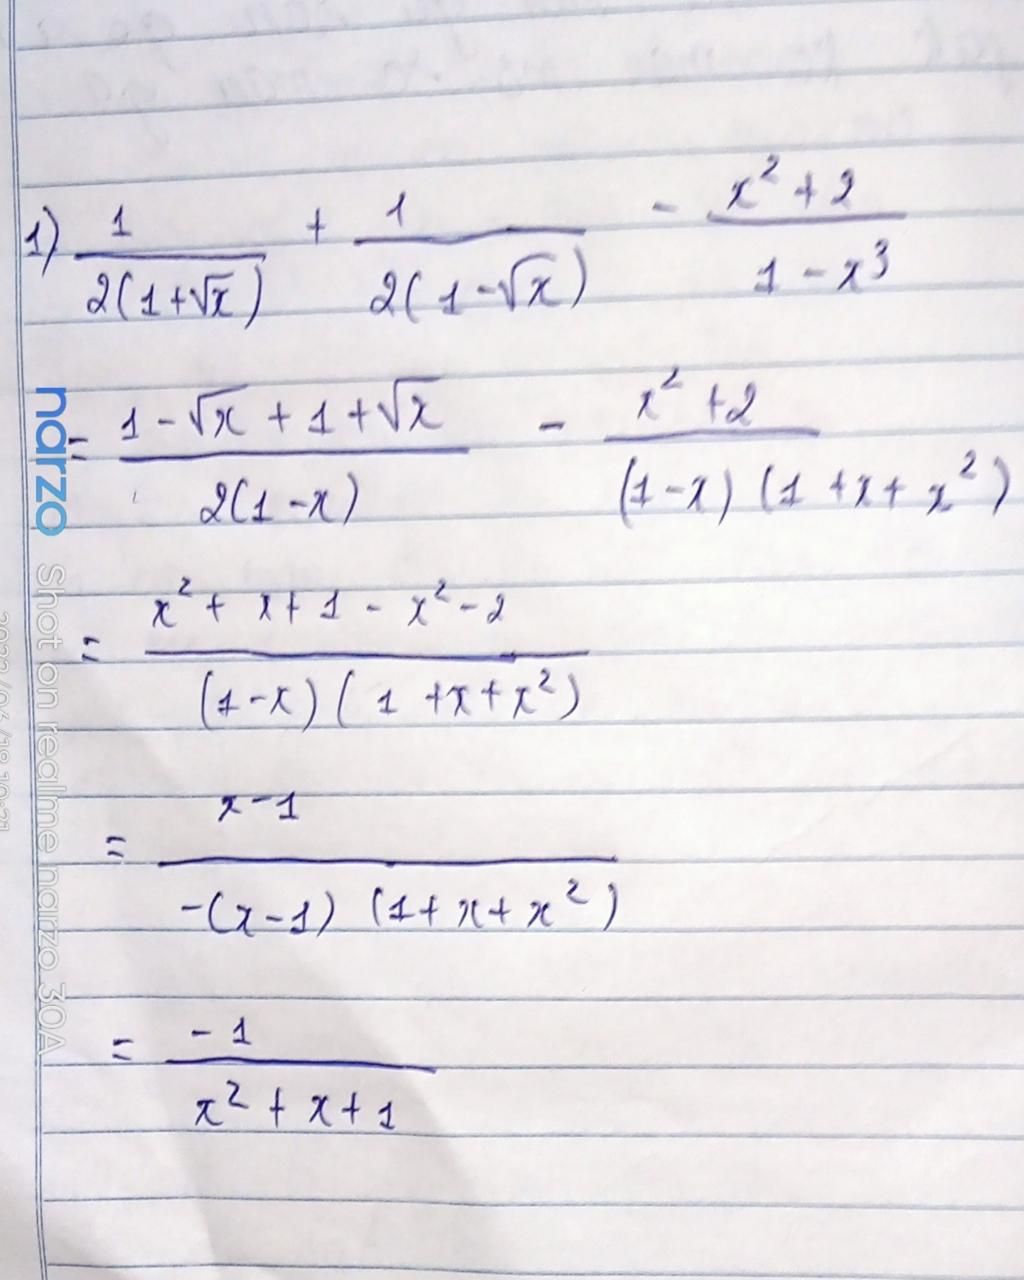 1) 1/(2(1+√x)) + 1/(2(1-√x)) - (x²+2)/(1-x³)
= (1-√x+1+√x)/(2(1-x)) - (x²+2)/((1-x)(1+x+x²))
= (x²+x+1-x²-2)/((1-x)(1+x+x²))
= (x-1)/(-(x-1)(1+x+x²))
= -1/(x²+x+1)
narzo Shot on realme narzo 30A